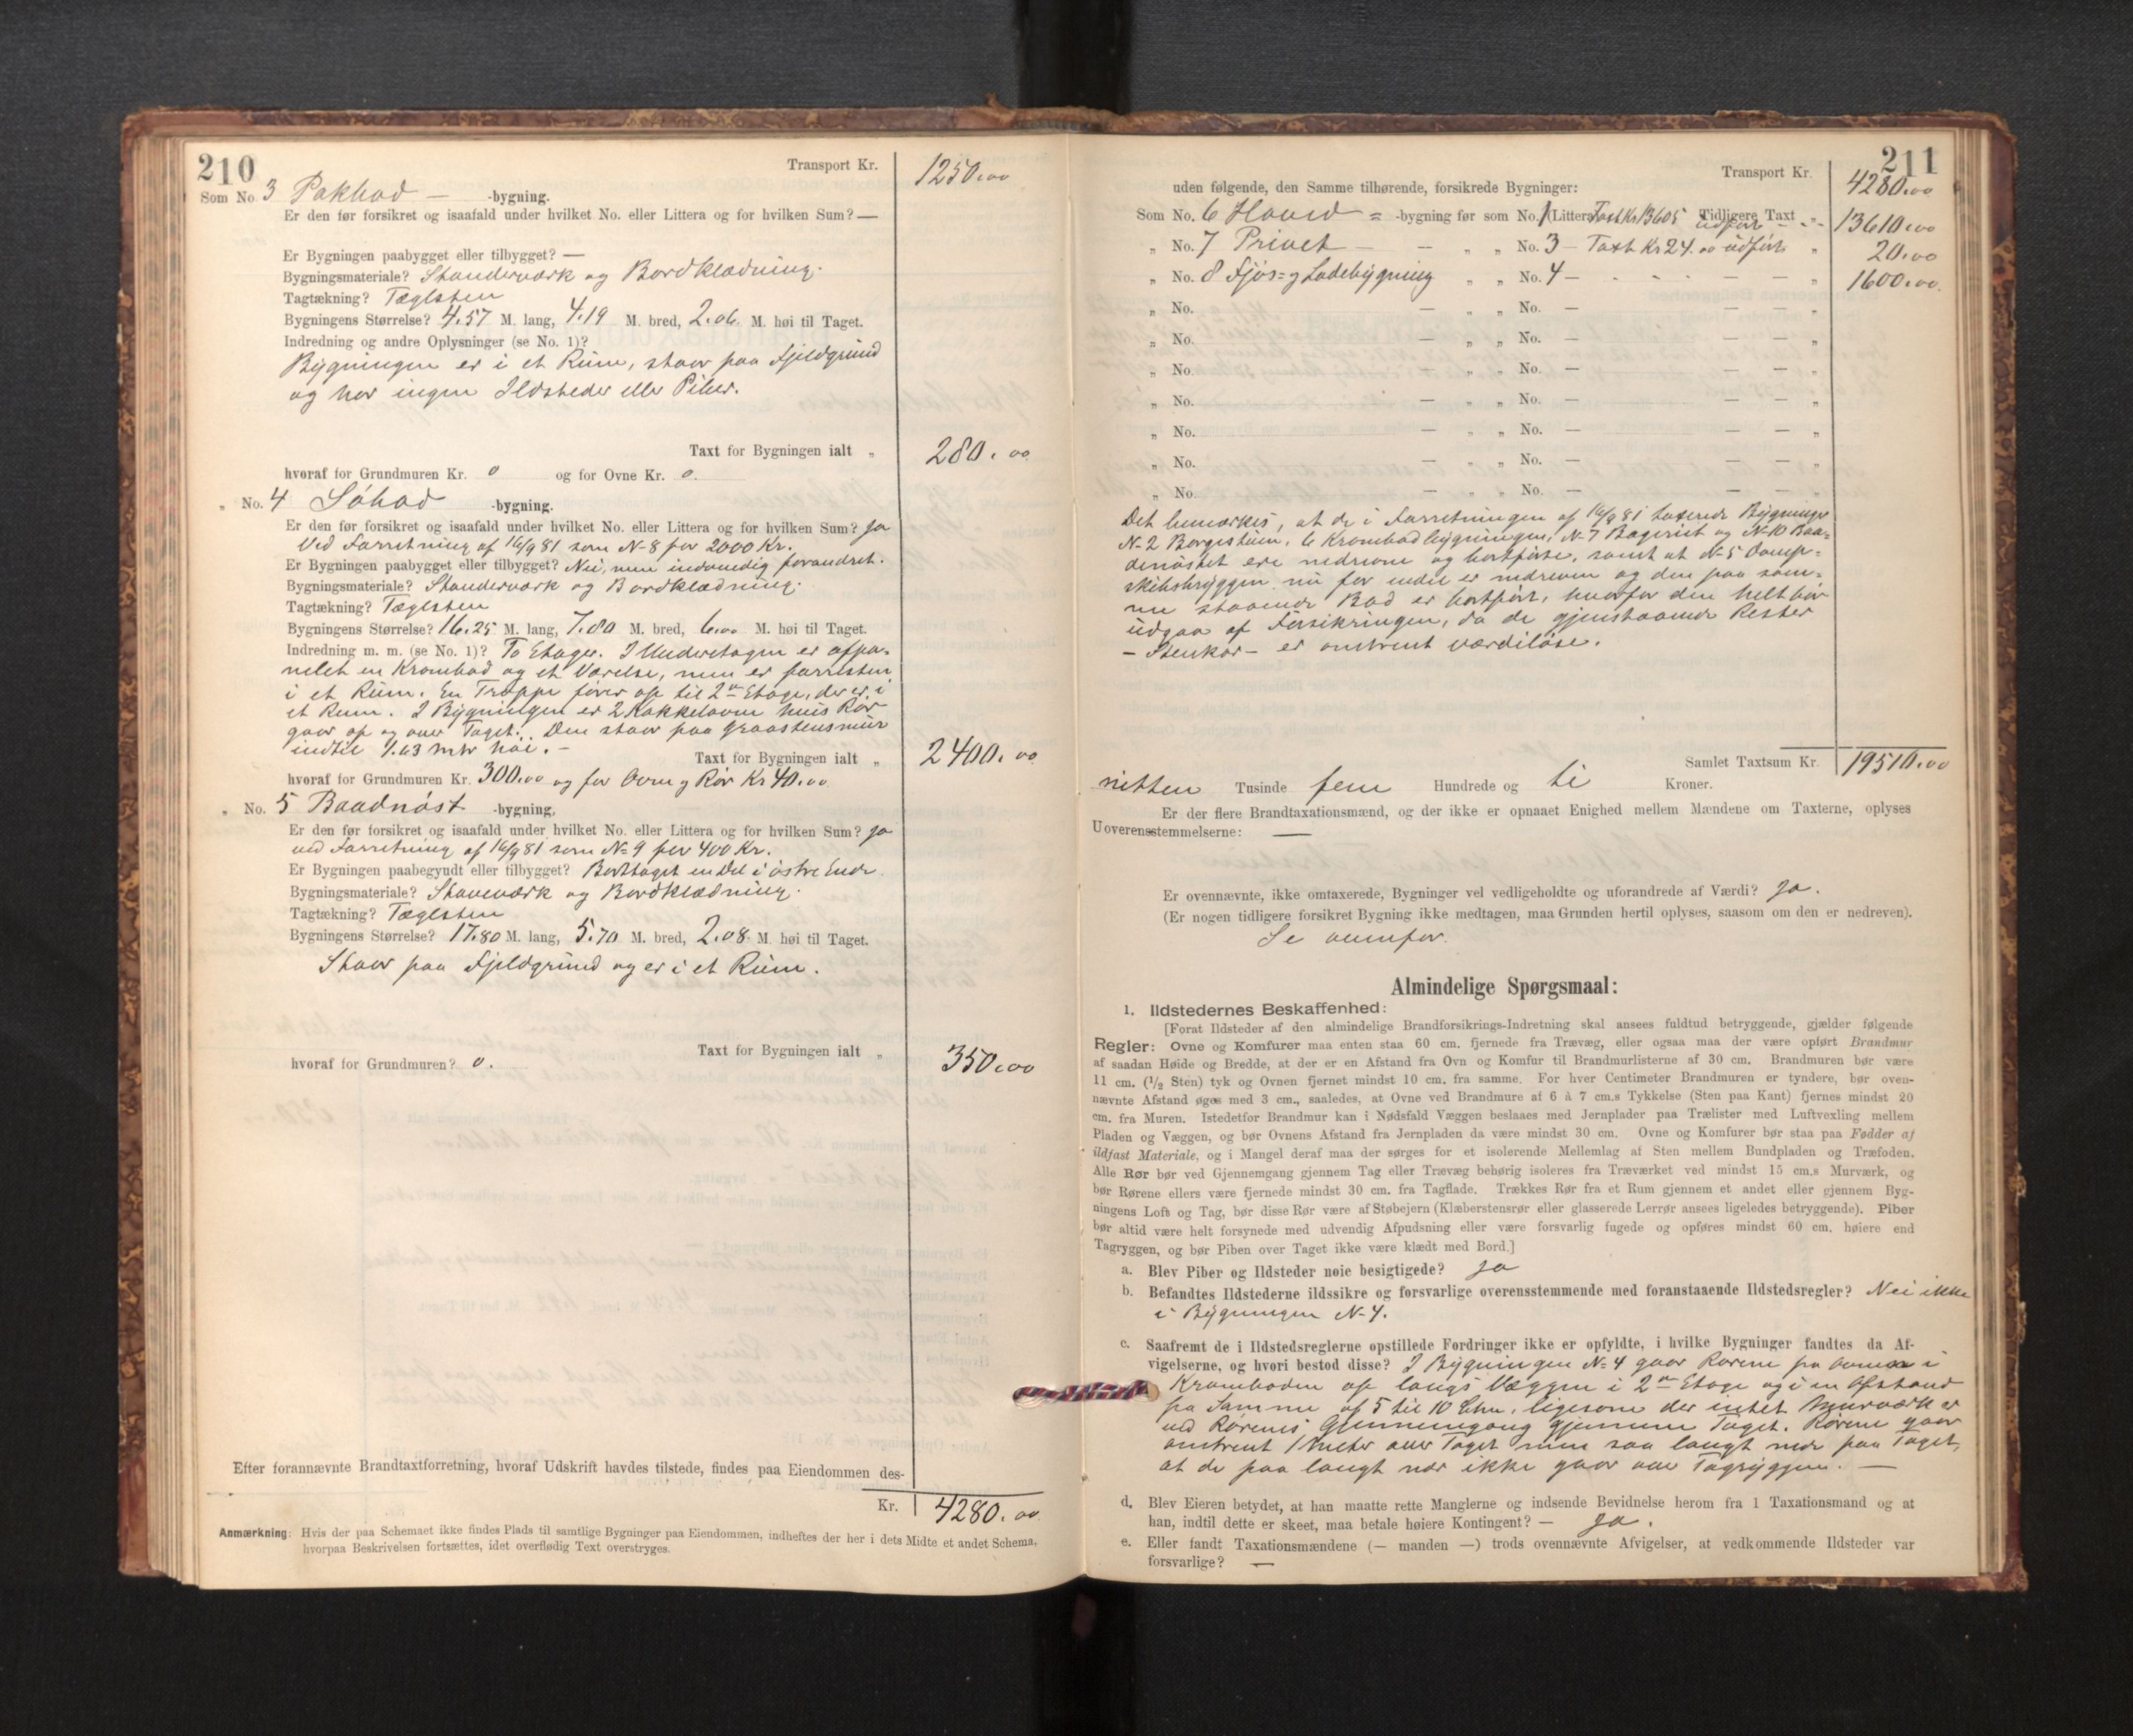 210
Transport Kr. 1250,00
Som No. 3 Pakbod — -bygning.
Er den før forsikret og isaafald under hvilket No. eller Littera og for hvilken Sum? —
Er Bygningen paabygget eller tilbygget? —
Bygningsmateriale? Standerværk og Bordklædning.
Tagtækning? Tæglsten
Bygningens Størrelse? 4.57 M. lang, 4.19 M. bred, 2.06 M. høi til Taget.
Indredning og andre Oplysninger (se No. 1)?
Bygningen er i et Rum, staar paa Fjeldgrund
og har ingen Ildsteder eller Piber.
Taxt for Bygningen ialt „ 280,00
hvoraf for Grundmuren Kr. 0 og for Ovne Kr. 0.
„ No. 4 Søbod -bygning.
Er den før forsikret og isaafald under hvilket No. eller Littera og for hvilken Sum? Ja
Ved Forretning af 16/9 81 som No 8 for 2000 Kr.
Er Bygningen paabygget eller tilbygget? Nei, men indvendig forandret.
Bygningsmateriale? Standerværk og Bordklædning.
Tagtækning? Tæglsten
Bygningens Størrelse? 16.25 M. lang, 7.80 M. bred, 6.00 M. høi til Taget.
Indredning m. m. (se No. 1)? To Etager. I Underetagen er afpa-
nelet en Krambod og et Værelse, men er forresten
i et Rum. En Trappe fører op til 2den Etage, der er i
et Rum. I Bygningen er 2 Kakkelovne hvis Rør
gaar op og over Taget. Den staar paa Graastensmur
indtil 1.63 mtr høi. —
Taxt for Bygningen ialt „ 2400,00
hvoraf for Grundmuren Kr. 300,00 og for Ovne og Rør Kr 40,00
„ No. 5 Baadnøst -bygning,
Er den før forsikret og isaafald under hvilket No. eller Littera og for hvilken Sum? Ja
ved Forretning af 16/9 81 som No 9 for 400 Kr.
Er Bygningen paabegyndt eller tilbygget? Borttaget en Del i østre Ende.
Bygningsmateriale? Staveværk og Bordklædning.
Tagtækning? Tæglsten
Bygningens Størrelse? 17.80 M. lang, 5.70 M. bred, 2.08 M. høi til Taget.
Staar paa Fjeldgrund og er i et Rum.
Taxt for Bygningen ialt „ 350,00
hvoraf for Grundmuren? 0.
Efter forannævnte Brandtaxtforretning, hvoraf Udskrift havdes tilstede, findes paa Eiendommen des-
Kr. 4280,00
Anmærkning: Hvis der paa Schemaet ikke findes Plads til samtlige Bygninger paa Eiendommen, indheftes der her i dets Midte et andet Schema,
hvorpaa Beskrivelsen fortsættes, idet overflødig Text overstryges.
211
Transport Kr. 4280,00
uden følgende, den Samme tilhørende, forsikrede Bygninger:
Som No. 6 Hoved = -bygning før som No. 1 (Littera Taxt Kr 13605 Tidligere Taxt „ udført 13610,00
„ No. 7 Privet — — „ „ No. 3 — Taxt Kr 24.00 udført „ 20,00
„ No. 8 Fjøs= og Ladebygning „ „ No. 4 — — — „ 1600,00.
„ No. — „ „ No. — — — „
„ No. — „ „ No. — — — „
„ No. — „ „ No. — — — „
„ No. — „ „ No. — — — „
„ No. — „ „ No. — — — „
„ No. — „ „ No. — — — „
„ No. — „ „ No. — — — „
Det bemærkes, at de i Forretningen af 16/9 81 taxerede Bygninger
No 2 Borgestuen, 6 Krambodbygningen, No 7 Bageriet og No 10 Baa-
denøstet ere nedrevne og bortførte, samt at No 5 Damp-
skibsbryggen nu for endel er nedreven og den paa sam-
me staaende Bod er bortført, hvorfor den helt bør
udgaa af Forsikringen, da de gjenstaaende Rester
— Stenkar — er omtrent værdiløse.
Samlet Taxtsum Kr. 19510,00
nitten Tusinde fem Hundrede og ti Kroner.
Er der flere Brandtaxationsmænd, og der ikke er opnaaet Enighed mellem Mændene om Taxterne, oplyses
Uoverensstemmelserne: —
Er ovennævnte, ikke omtaxerede, Bygninger vel vedligeholdte og uforandrede af Værdi? Ja.
(Er nogen tidligere forsikret Bygning ikke medtagen, maa Grunden hertil oplyses, saasom om den er nedreven).
Se ovenfor.
Almindelige Spørgsmaal:
1. Ildstedernes Beskaffenhed:
[Forat Ildsteder af den almindelige Brandforsikrings-Indretning skal ansees fuldtud betryggende, gjælder følgende
Regler: Ovne og Komfurer maa enten staa 60 cm. fjernede fra Trævæg, eller ogsaa maa der være opført Brandmur
af saadan Høide og Bredde, at der er en Afstand fra Ovn og Komfur til Brandmurlisterne af 30 cm. Brandmuren bør være
11 cm. (1/2 Sten) tyk og Ovnen fjernet mindst 10 cm. fra samme. For hver Centimeter Brandmuren er tyndere, bør oven-
nævnte Afstand øges med 3 cm., saaledes, at Ovne ved Brandmure af 6 à 7 cm.s Tykkelse (Sten paa Kant) fjernes mindst 20
cm. fra Muren. Istedetfor Brandmur kan i Nødsfald Væggen beslaaes med Jernplader paa Trælister med Luftvexling mellem
Pladen og Væggen, og bør Ovnens Afstand fra Jernpladen da være mindst 30 cm. Ovne og Komfurer bør staa paa Fødder af
ildfast Materiale, og i Mangel deraf maa der sørges for et isolerende Mellemlag af Sten mellem Bundpladen og Træfoden.
Alle Rør bør ved Gjennemgang gjennem Tag eller Trævæg behørig isoleres fra Træværket ved mindst 15 cm.s Murværk, og
bør Rørene ellers være fjernede mindst 30 cm. fra Tagflade. Trækkes Rør fra et Rum gjennem et andet eller gjennem Byg-
ningens Loft og Tag, bør disse Rør være af Støbejern (Klæberstensrør eller glasserede Lerrør ansees ligeledes betryggende). Piber
bør altid være helt forsynede med udvendig Afpudsning eller være forsvarlig fugede og opføres mindst 60 cm. høiere end
Tagryggen, og bør Piben over Taget ikke være klædt med Bord.]
a. Blev Piber og Ildsteder nøie besigtigede? Ja
b. Befandtes Ildstederne ildssikre og forsvarlige overensstemmende med foranstaaende Ildstedsregler? Nei ikke
i Bygningen No 4.
c. Saafremt de i Ildstedsreglerne opstillede Fordringer ikke er opfyldte, i hvilke Bygninger fandtes da Af-
vigelserne, og hvori bestod disse? I Bygningen No 4 gaar Rørene fra Ovnen i
Kramboden op langs Væggen i 2den Etage og i en Afstand
fra Samme af 5 til 10 Ctm, ligesom der intet Murværk er
ved Rørenes Gjennemgang gjennem Taget. Rørene gaar
omtrent 1 Meter over Taget men saa langt nede paa Taget,
at de paa langt nær ikke gaar over Tagryggen. —
d. Blev Eieren betydet, at han maatte rette Manglerne og indsende Bevidnelse herom fra 1 Taxationsmand og at
han, indtil dette er skeet, maa betale høiere Kontingent? — Ja.
e. Eller fandt Taxationsmændene (— manden —) trods ovennævnte Afvigelser, at vedkommende Ildsteder var
forsvarlige? —